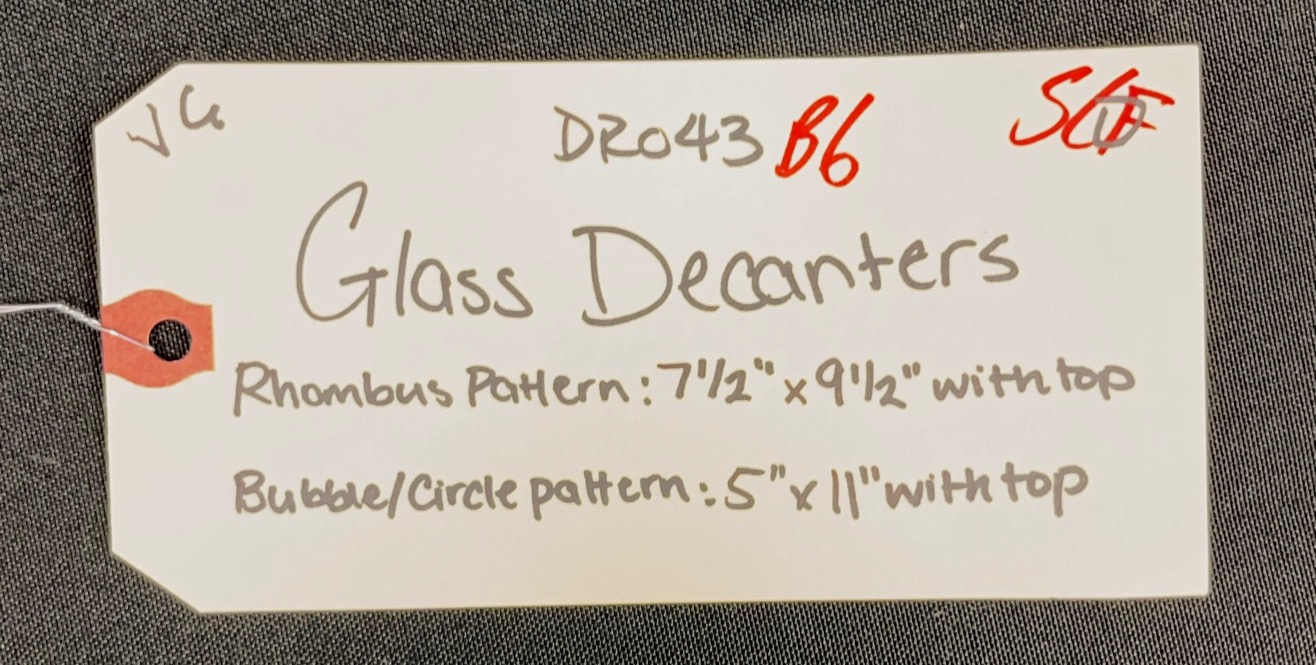 VG
DR043 B6
Glass Decanters
Rhombus Pattern: 7 1/2" x 9 1/2" with top
Bubble/Circle pattern: 5" x 11" with top